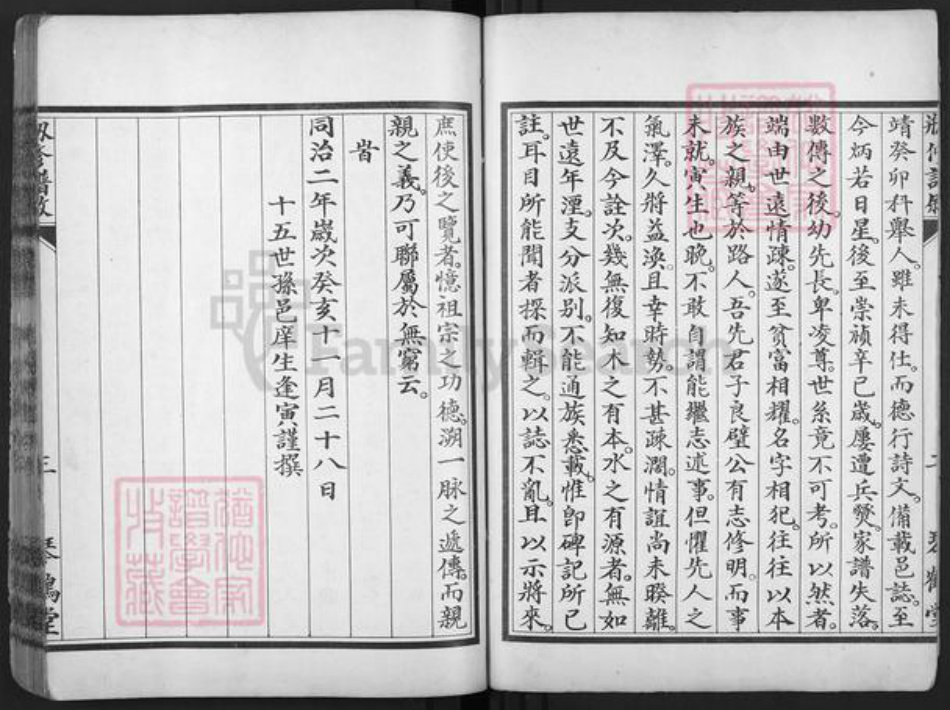 靖癸卯科舉人。雖未得仕。而德行詩文。備載邑誌。至
今炳若日星。後至崇禎辛巳歲。屢遭兵燹。家譜失落。
數傳之後。幼先長。卑凌尊。世系竟不可考。所以然者。
端由世遠情疎。遂至貧富相耀。名字相犯。往往以本
族之親。等於路人。吾先君子良璧公有志修明。而事
未就。寅生也晚。不敢自謂能繼志述事。但懼先人之
氣澤。久將益渙。且幸時勢。不甚疎濶。情誼尚未暌離。
不及今詮次。幾無復知木之有本。水之有源者。無如
世遠年湮。支分派別。不能通族悉載。惟卽碑記所已
註。耳目所能聞者採而輯之。以誌不亂。且以示將來。
二
庶使後之覽者。憶祖宗之功德。溯一脉之遞傳。而親
親之義。乃可聯屬於無窮云。
旹
同治二年歲次癸亥十一月二十八日
十五世孫邑庠生逢寅謹撰
三
琴鶴堂
猶他家譜學會珍藏
FamilySearch